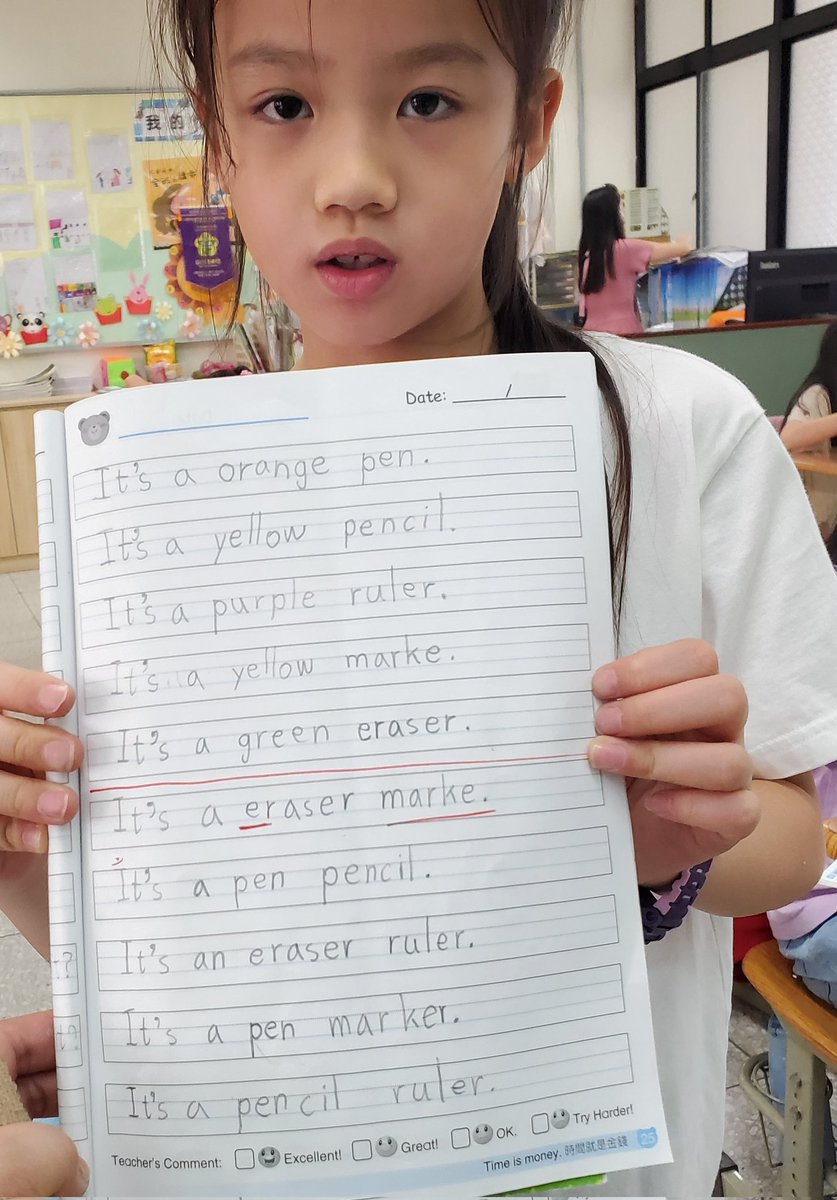 我的
Date: /
It's a orange pen.
It's a yellow pencil.
It's a purple ruler.
It's a yellow marke.
It's a green eraser.
It's a eraser marke.
It's a pen pencil.
It's an eraser ruler.
It's a pen marker.
It's a pencil ruler.
Teacher's Comment: Excellent! Great! OK. Try Harder!
Time is money. 時間就是金錢 25